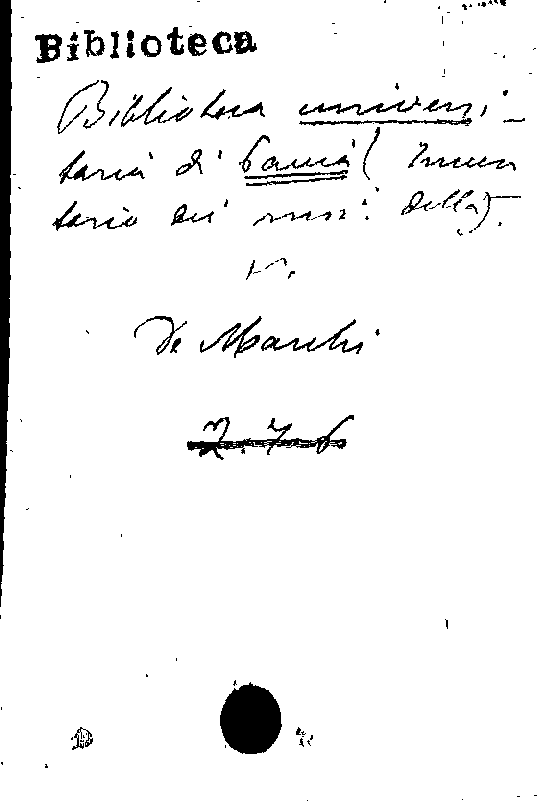 Biblioteca
Biblioteca universi-
taria di Pavia (Inven
tario dei mss. della).
v.
De Marchi
2.7.6